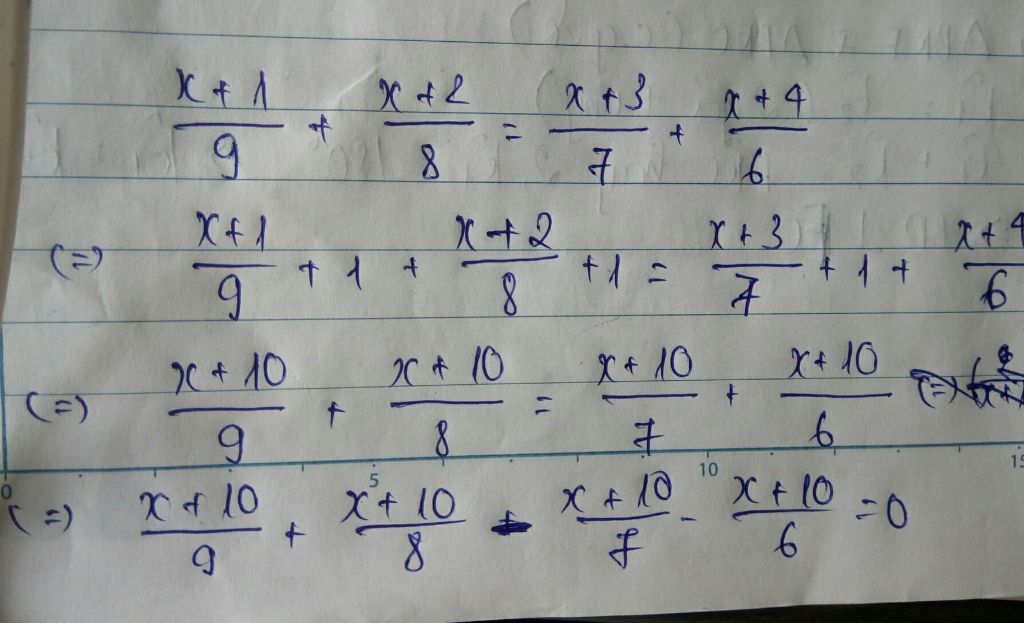 x+1/9 + x+2/8 = x+3/7 + x+4/6
(=) x+1/9 + 1 + x+2/8 + 1 = x+3/7 + 1 + x+4/6
(=) x+10/9 + x+10/8 = x+10/7 + x+10/6
0 5 10 15
(=) x+10/9 + x+10/8 - x+10/7 - x+10/6 = 0